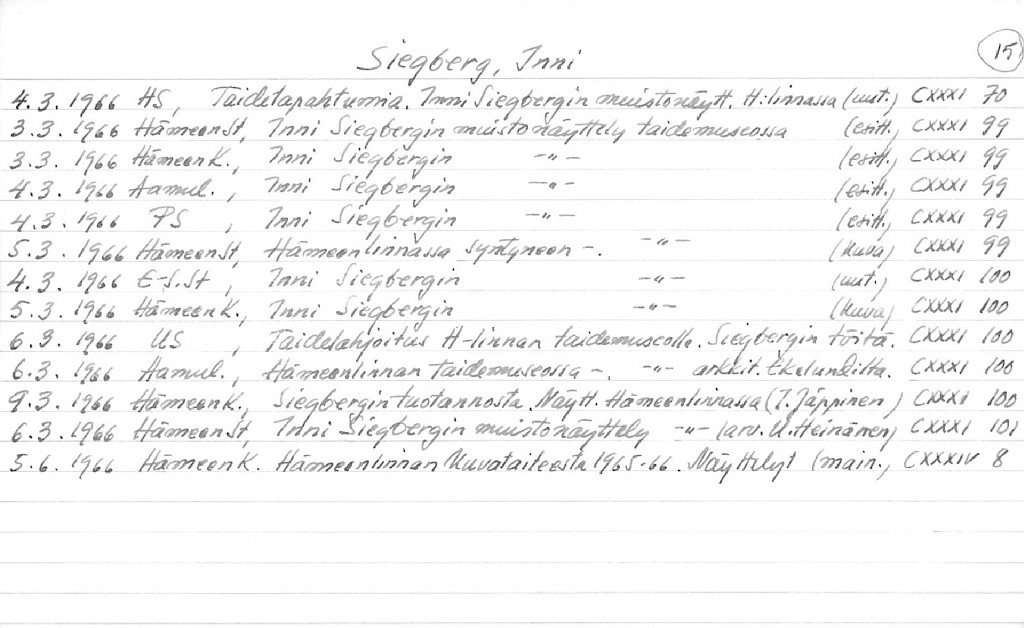 15
Siegberg, Inni
4.3. 1966 HS, Taidetapahtumia. Inni Siegbergin muistonäytt. H:linnassa (uut.) CXXXI 70
3.3. 1966 HämeenSt, Inni Siegbergin muistonäyttely taidemuseossa (esitt.) CXXXI 99
3.3. 1966 HämeenK., Inni Siegbergin -"- (esitt.) CXXXI 99
4.3. 1966 Aamul., Inni Siegbergin -"- (esitt.) CXXXI 99
4.3. 1966 PS, Inni Siegbergin -"- (esitt.) CXXXI 99
5.3. 1966 HämeenSt, Hämeenlinnassa syntyneen -. -"- (kuva) CXXXI 99
4.3. 1966 E-S.St, Inni Siegbergin -"- (uut.) CXXXI 100
5.3. 1966 HämeenK., Inni Siegbergin -"- (kuva) CXXXI 100
6.3. 1966 US, Taidelahjoitus H-linnan taidemuseolle. Siegbergin töitä. CXXXI 100
6.3. 1966 Aamul., Hämeenlinnan taidemuseossa -. -"- arkkit. Ekelundilta. CXXXI 100
9.3. 1966 HämeenK., Siegbergin tuotannosta. Näytt. Hämeenlinnassa (I. Jäppinen) CXXXI 100
6.3. 1966 HämeenSt, Inni Siegbergin muistonäyttely -"- (arv. U. Heinänen) CXXXI 101
5.6. 1966 HämeenK. Hämeenlinnan kuvataiteesta 1965-66. Näyttelyt (main.) CXXXIV 8